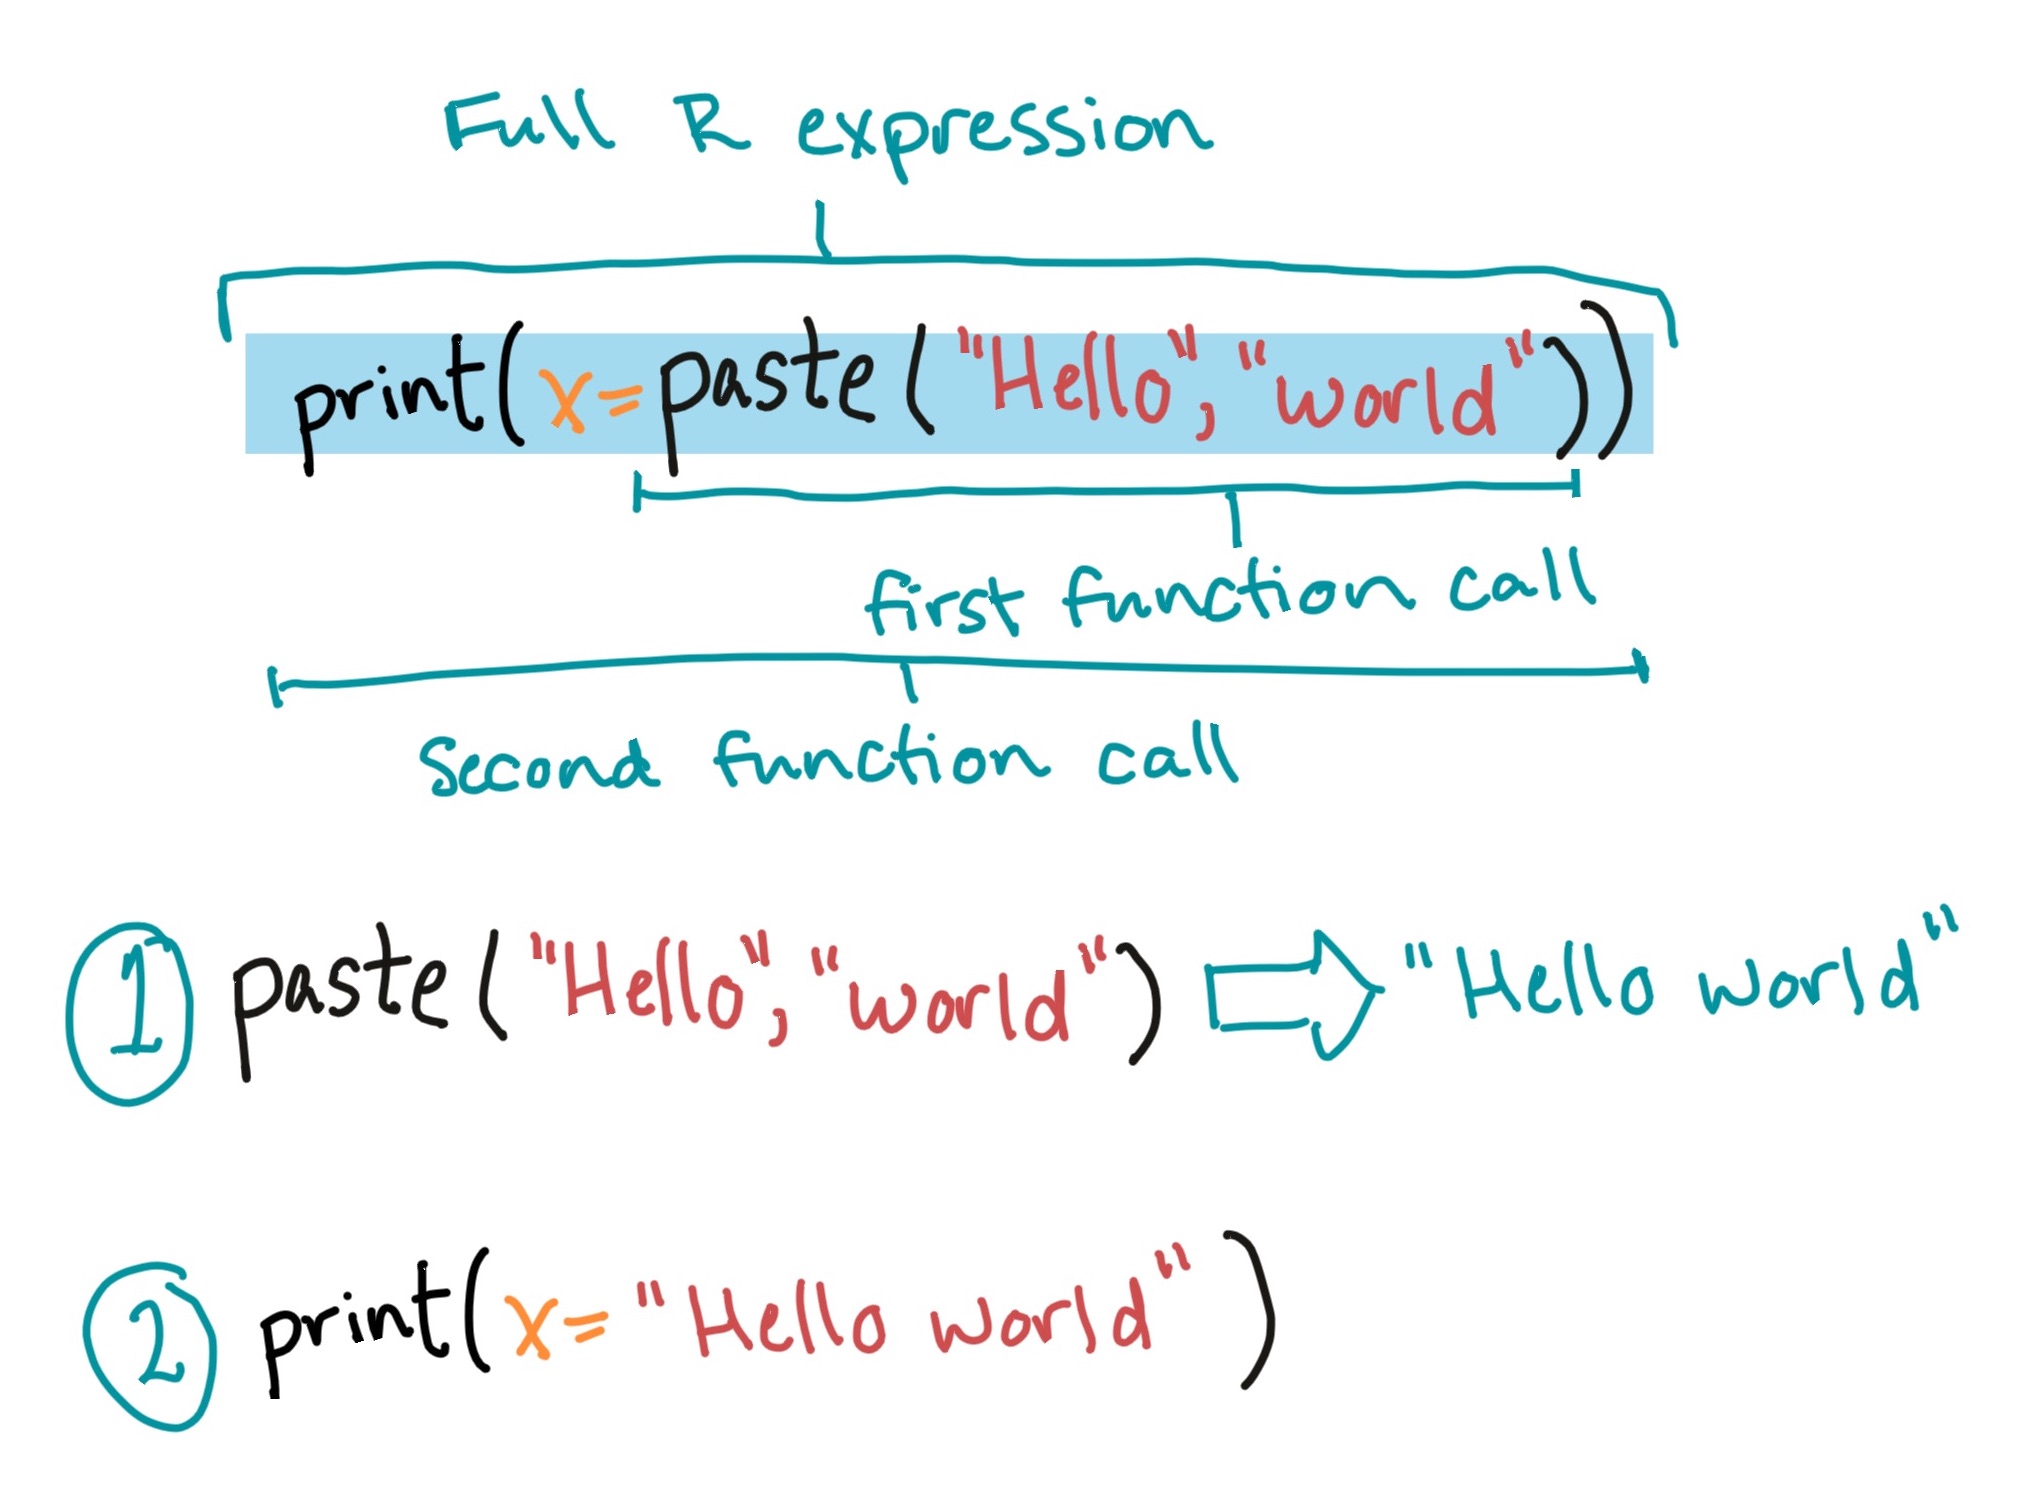 Full R expression
print(x=paste("Hello", "world"))
first function call
Second function call
1 paste("Hello", "world") "Hello world"
2 print(x="Hello world")